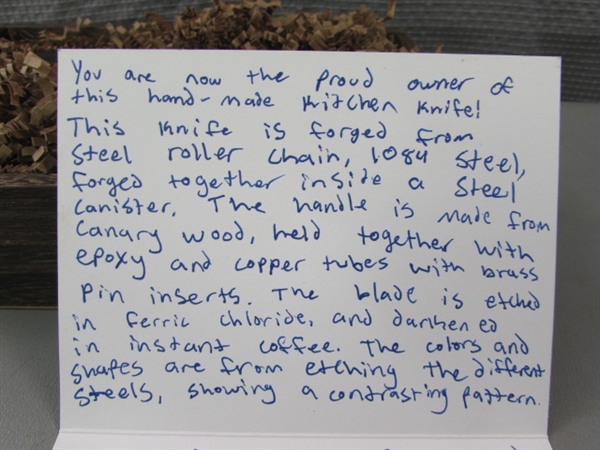 You are now the proud owner of
this hand-made Kitchen Knife!
This Knife is forged from
Steel roller chain, 1084 Steel,
Forged together inside a Steel
Canister. The handle is made from
Canary wood, held together with
epoxy and copper tubes with brass
Pin inserts. The blade is etched
in ferric chloride, and darkened
in instant coffee. The colors and
shapes are from etching the different
Steels, showing a contrasting pattern.